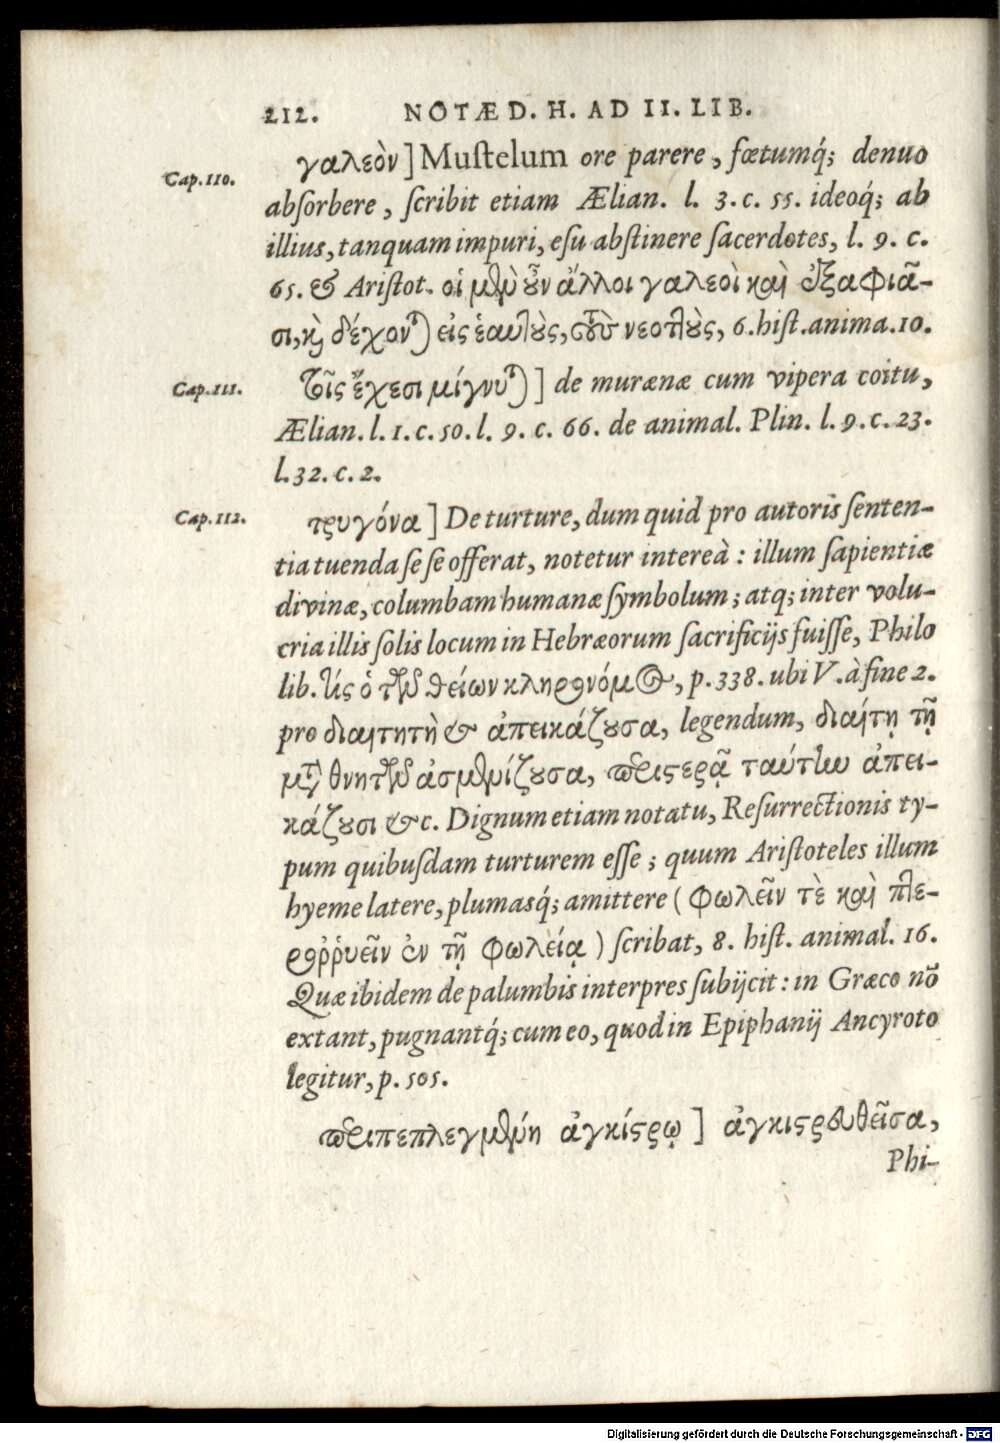 212. NOTÆ D. H. AD II. LIB.
Cap.110. γαλεὸν] Muſtelum ore parere, fœtumq́; denuo
abſorbere, ſcribit etiam Ælian. l. 3. c. 55. ideoq́; ab
illius, tanquam impuri, eſu abſtinere ſacerdotes, l. 9. c.
65. & Ariſtot. οἱ μὲν οὖν ἄλλοι γαλεοὶ καὶ ἐξαφιᾶ-
σι, καὶ δέχονται εἰς ἑαυτοὺς, τοὺς νεοττοὺς, 6. hiſt. anima. 10.
Cap.111. τοῖς ἔχεσι μίγνυται] de murænæ cum vipera coitu,
Ælian. l. 1. c. 50. l. 9. c. 66. de animal. Plin. l. 9. c. 23.
l. 32. c. 2.
Cap.112. τρυγόνα] De turture, dum quid pro autoris ſenten-
tia tuenda ſe ſe offerat, notetur intereà: illum ſapientiæ
divinæ, columbam humanæ ſymbolum; atq; inter volu-
cria illis ſolis locum in Hebræorum ſacrificijs fuiſſe, Philo
lib. τίς ὁ τῶν θείων κληρονόμος, p. 338. ubi V. à fine 2.
pro διαιτητὴ & ἀπεικάζουσα, legendum, διαίτῃ τῇ
μετὰ θνητῶν ἀσμενίζουσα, περιστερᾷ ταύτην ἀπει-
κάζουσι &c. Dignum etiam notatu, Reſurrectionis ty-
pum quibuſdam turturem eſſe; quum Ariſtoteles illum
hyeme latere, plumasq́; amittere (φωλεῖν τὲ καὶ πτε-
ροῤῥυεῖν ἐν τῇ φωλείᾳ) ſcribat, 8. hiſt. animal. 16.
Quæ ibidem de palumbis interpres ſubijcit: in Græco nõ
extant, pugnantq́; cum eo, quod in Epiphanij Ancyroto
legitur, p. 505.
περιπεπλεγμένη ἀγκίστρῳ] ἀγκιστρευθεῖσα,
Phi-
Digitalisierung gefördert durch die Deutsche Forschungsgemeinschaft - DFG